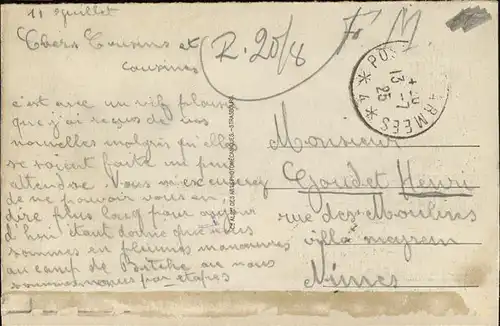 11 Juillet
Chers Cousins et
cousines
c'est avec un vif plaisir
que j'ai reçus de vos
nouvelles malgrès qu'elles
se soient faite un peu
attendre. Vous m'excuserez
de ne pouvoir vous en
dire plus long pour aujour
d'hui étant donné que nous
sommes en pleines manœuvres
au camp de Bitche ou nous
sommes venus par étapes
R. 20/8
F M
POSTE AUX ARMEES
13-7
25
* 4 *
Monsieur
Goudet Henri
rue des Moulins
villa meyrem
Nimes